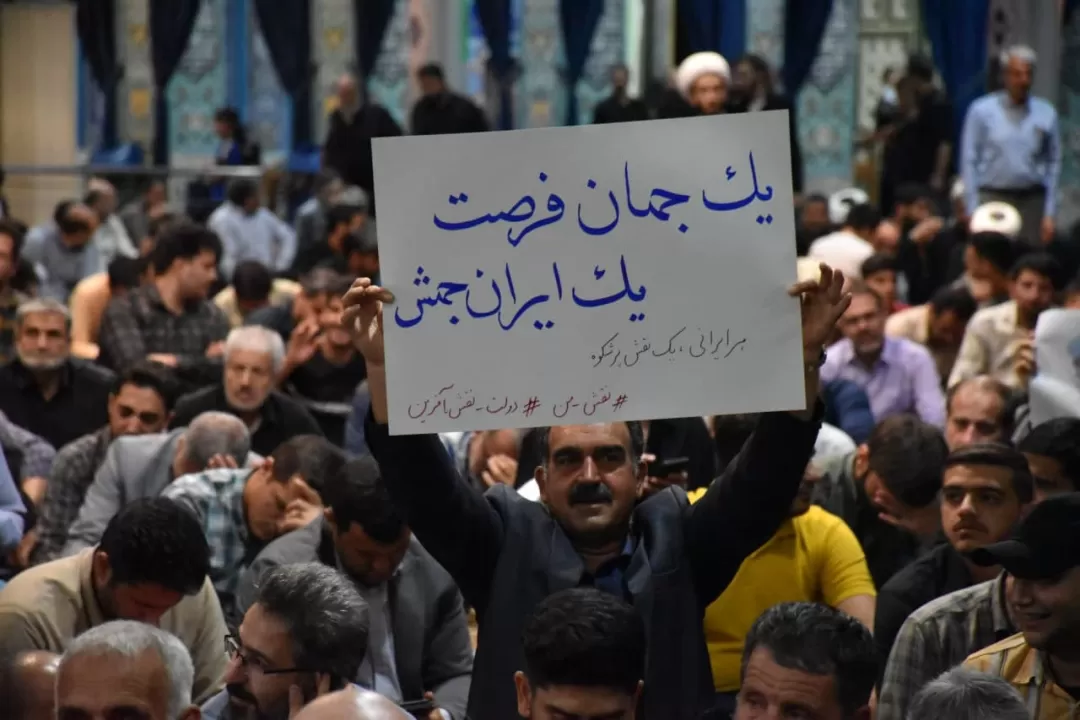 یك جهان فرصت
یك ایران جهش
هر ایرانی، یک نقش پرشکوه
#نقش-من #دولت-نقش‌آفرین